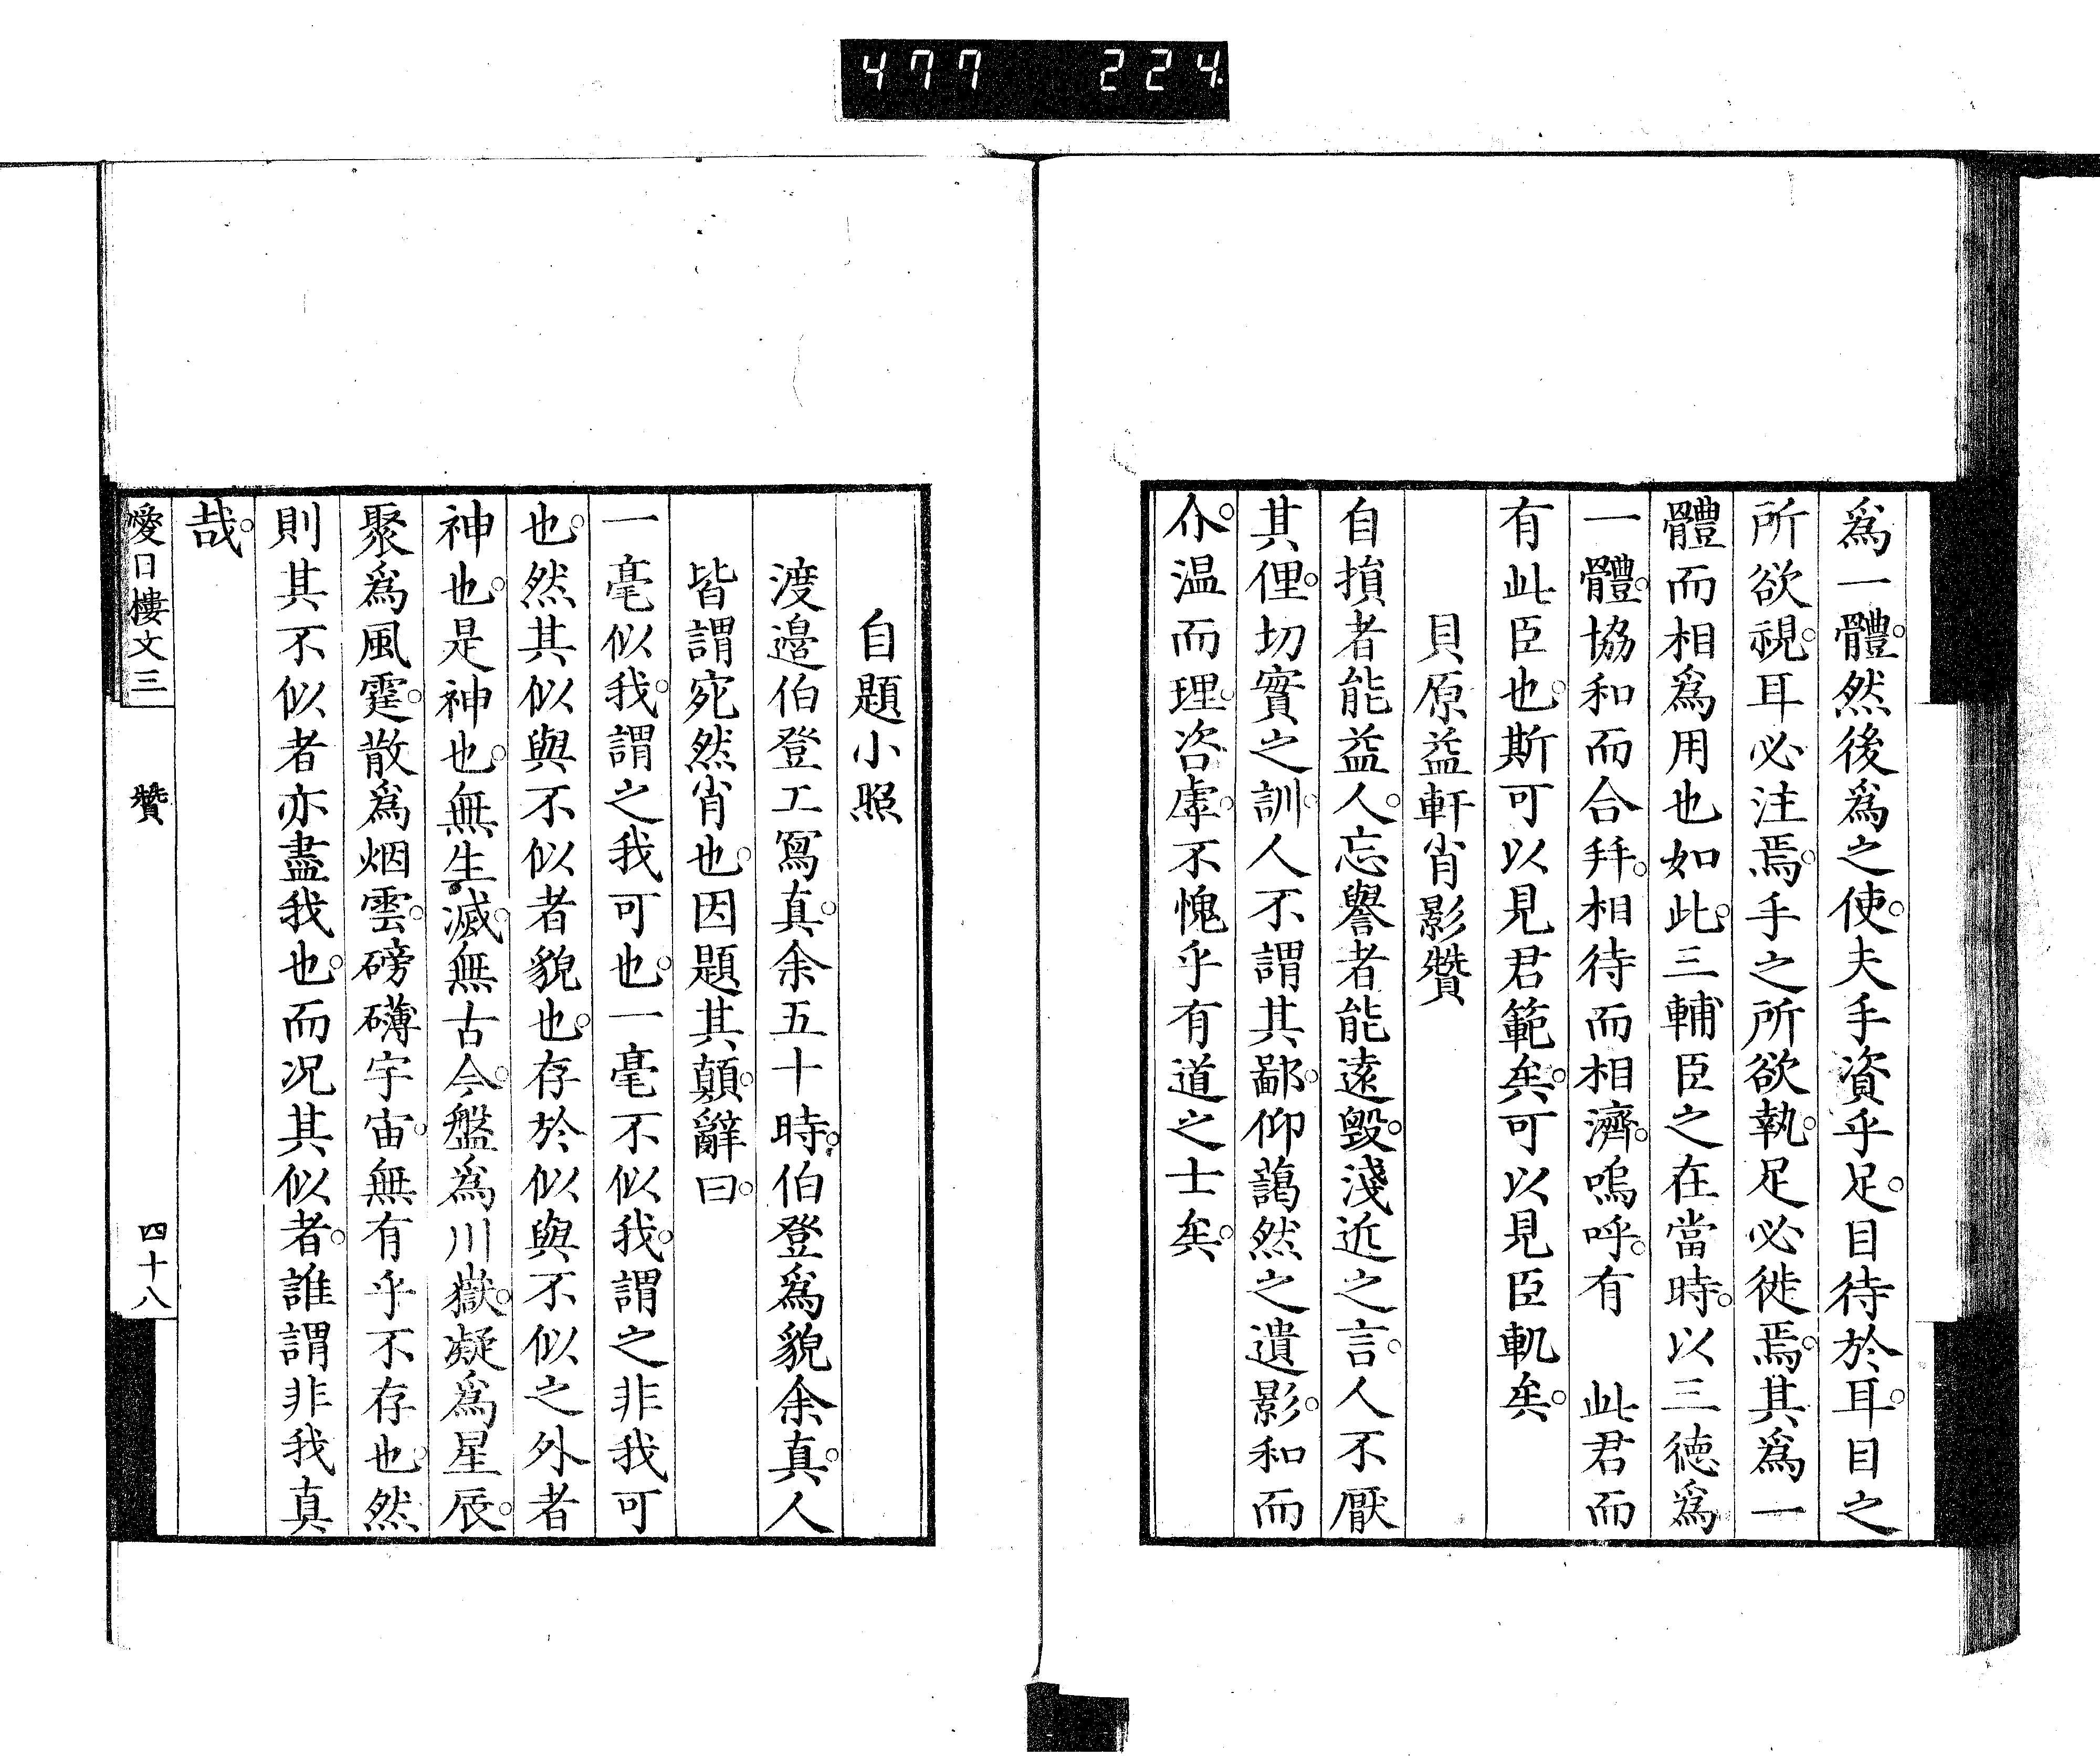 477 224
爲一體。然後爲之使。夫手資乎足。目待於耳。目之
所欲視。耳必注焉。手之所欲執。足必徙焉。其爲一
體而相爲用也如此。三輔臣之在當時。以三德爲
一體。協和而合拜。相待而相濟。嗚呼。有　此君而
有此臣也。斯可以見君範矣。可以見臣軌矣。
貝原益軒肖影贊
自損者能益人。忘譽者能遠毀。淺近之言。人不厭
其俚。切實之訓。人不謂其鄙。仰藹然之遺影。和而
介。温而理。咨虖。不愧乎有道之士矣。
自題小照
渡邉伯登工寫真。余五十時。伯登爲貌余真。人
皆謂宛然肖也。因題其顛。辭曰。
一毫似我。謂之我可也。一毫不似我。謂之非我可
也。然其似與不似者貌也。存於似與不似之外者
神也。是神也。無生滅。無古今。盤爲川嶽。凝爲星辰。
聚爲風霆。散爲烟雲。磅礴宇宙。無有乎不存也。然
則其不似者亦盡我也。而况其似者。誰謂非我真
哉。
愛日樓文三　贊　四十八